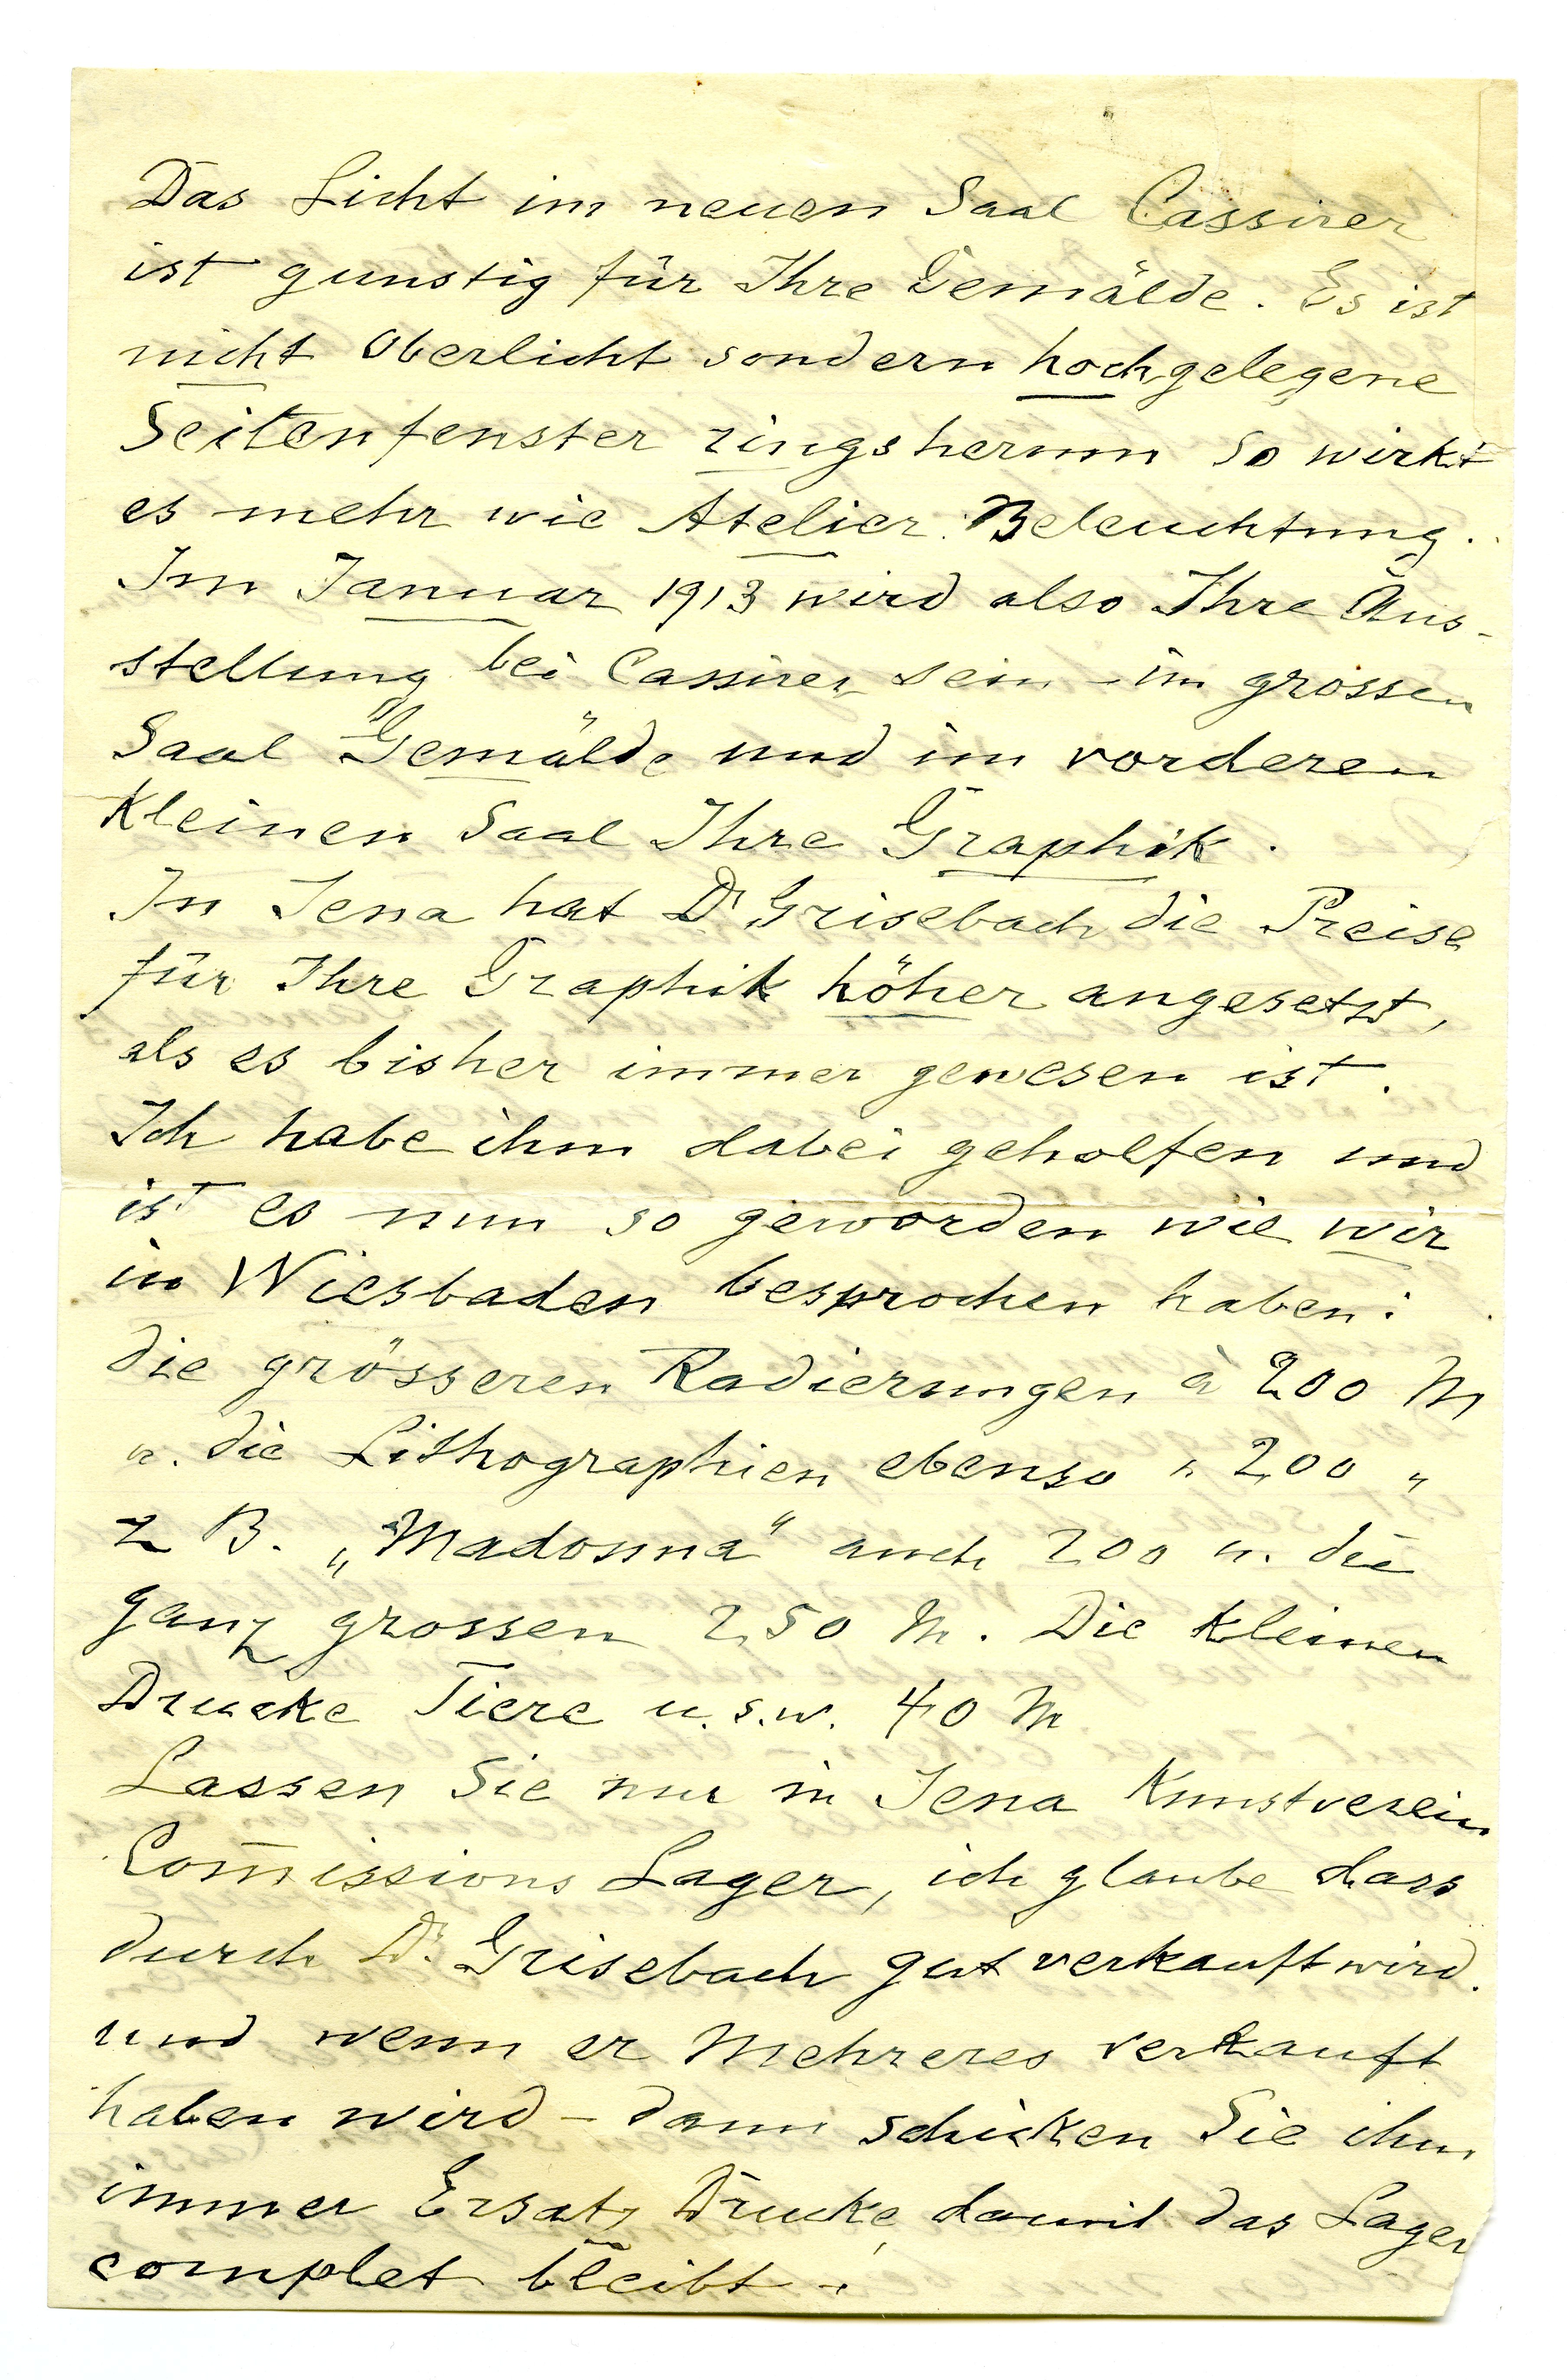 Das Licht im neuen Saal Cassirer
ist gunstig für Ihre Gemälde. Es ist
nicht Oberlicht sondern hochgelegene
Seitenfenster ringsherum so wirkt
es mehr wie Atelier Beleuchtung.
Im Januar 1913 wird also Ihre Aus-
stellung bei Cassirer sein – im grossen
Saal Gemälde und im vorderen
Kleinen Saal Ihre Graphik.
In Jena hat Dr Grisebach die Preise
für Ihre Graphik höher angesetzt,
als es bisher immer gewesen ist.
Ich habe ihm dabei geholfen und
ist es nun so geworden wie wir
in Wiesbaden besprochen haben:
die grösseren Radierungen à 200 M
u. die Lithographien ebenso " 200 "
z B. „Madonna“ auch 200 u. die
ganz grossen 250 M. Die Kleinen
Drucke Tiere u.s.w. 40 M
Lassen Sie nur in Jena Kunstverein
Com̄issions Lager, ich glaube dass
durch Dr. Grisebach gut verkauft wird.
und wenn er Mehreres verkauft
haben wird – dann schicken Sie ihm
immer Ersatz Drucke, damit das Lager
complet bleibt.